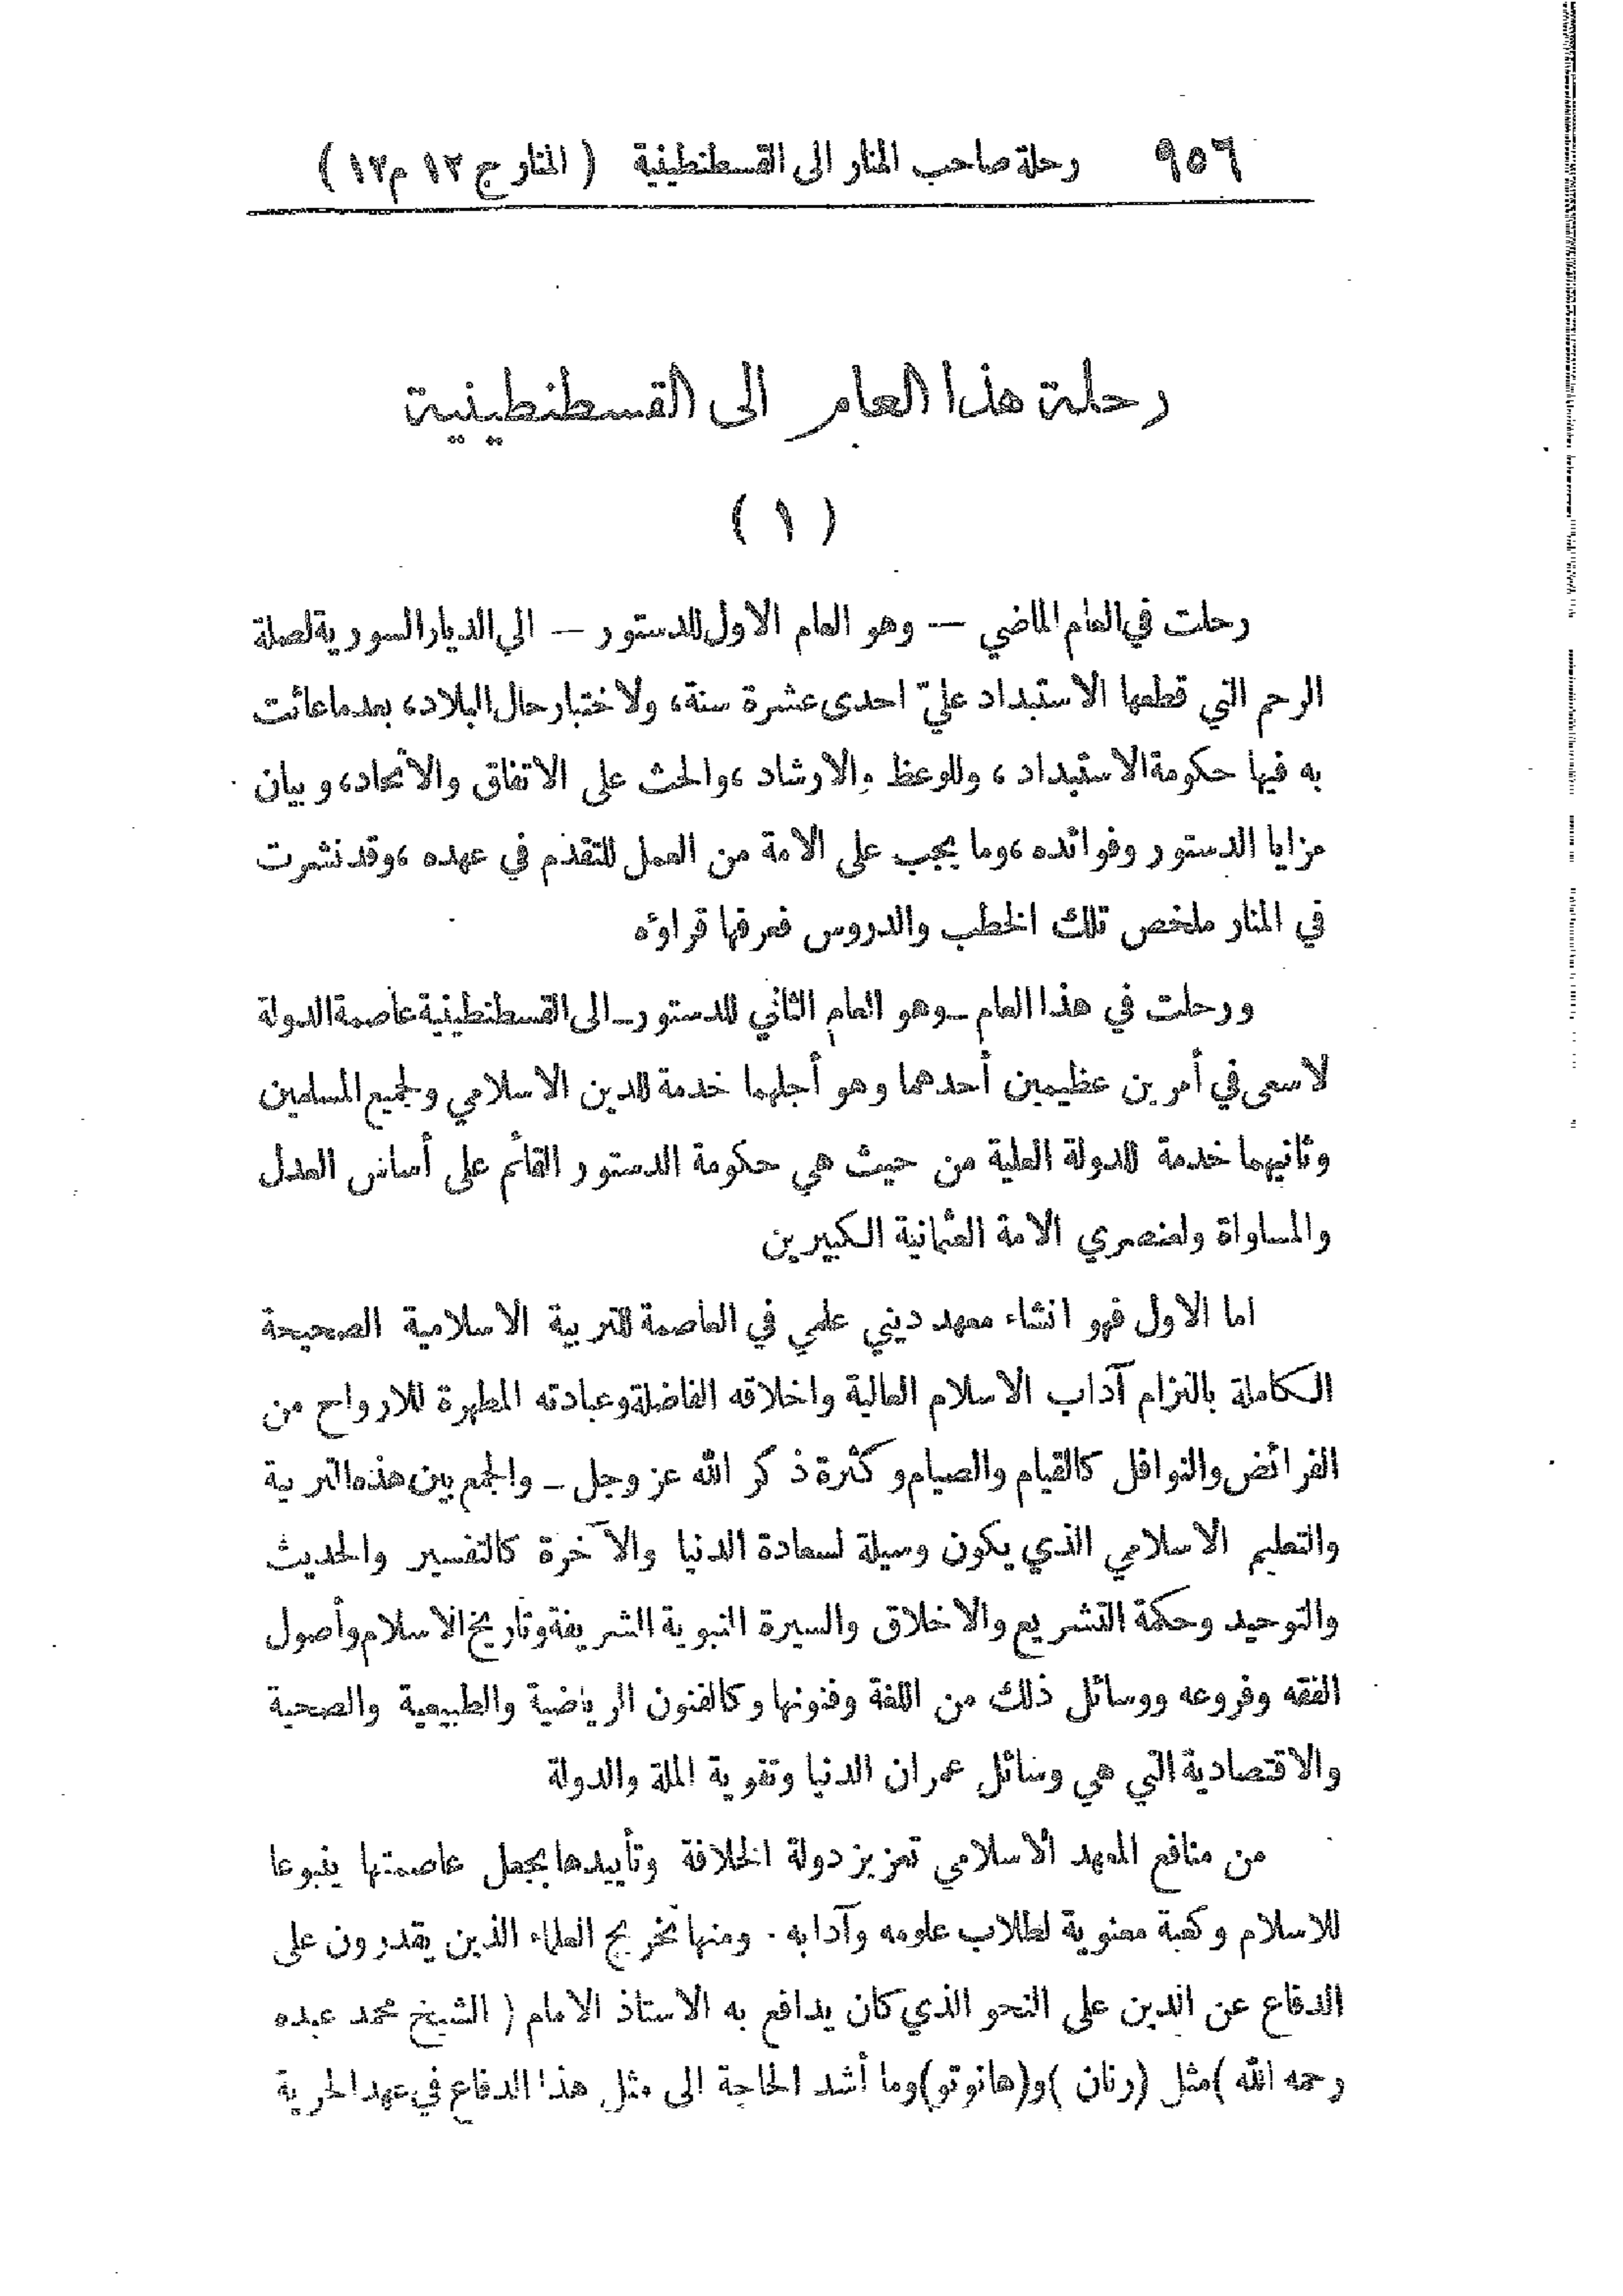 ٩٥٦ رحلة صاحب المنار الى القسطنطينية ( المنار ج ١٢ م ١٢ )
رحلة هذا العام الى القسطنطينية
( ١ )
رحلت في العام الماضي — وهو العام الاول للدستور — الي الديار السورية لصلة
الرحم التي قطعها الاستبداد عليّ احدى عشرة سنة، ولاختبار حال البلاد، بعد ما عاثت
به فيها حكومة الاستبداد ، وللوعظ والارشاد ،والحث على الاتفاق والاتحاد، وبيان
مزايا الدستور وفوائده ،وما يجب على الامة من العمل للتقدم في عهده ،وقد نشرت
في المنار ملخص تلك الخطب والدروس فعرفها قراؤه
ورحلت في هذا العام _وهو العام الثاني للدستور_ الى القسطنطينية عاصمة الدولة
لاسعى في أمرين عظيمين أحدهما وهو أجلهما خدمة للدين الاسلامي ولجميع المسلمين
وثانيهما خدمة للدولة العلية من حيث هي حكومة الدستور القائم على أساس العدل
والمساواة ولعنصري الامة العثمانية الكبيرين
اما الاول فهو انشاء معهد ديني علمي في العاصمة للتربية الاسلامية الصحيحة
الكاملة بالتزام آداب الاسلام العالية واخلاقه الفاضلة وعبادته المطهرة للارواح من
الفرائض والنوافل كالقيام والصيام وكثرة ذكر الله عز وجل _ والجمع بين هذه التربية
والتعليم الاسلامي الذي يكون وسيلة لسعادة الدنيا والآخرة كالتفسير والحديث
والتوحيد وحكمة التشريع والاخلاق والسيرة النبوية الشريفة وتاريخ الاسلام وأصول
الفقه وفروعه ووسائل ذلك من اللغة وفنونها وكالفنون الرياضية والطبيعية والصحية
والاقتصادية التي هي وسائل عمران الدنيا وتقوية الملة والدولة
من منافع المعهد الاسلامي تعزيز دولة الخلافة وتأييدها بجعل عاصمتها ينبوعا
للاسلام وكعبة معنوية لطلاب علومه وآدابه . ومنها تخريج العلماء الذين يقدرون على
الدفاع عن الدين على النحو الذي كان يدافع به الاستاذ الامام ( الشيخ محمد عبده
رحمه الله )مثل (رنان )و(هانوتو)وما أشد الحاجة الى مثل هذا الدفاع في عهد الحرية